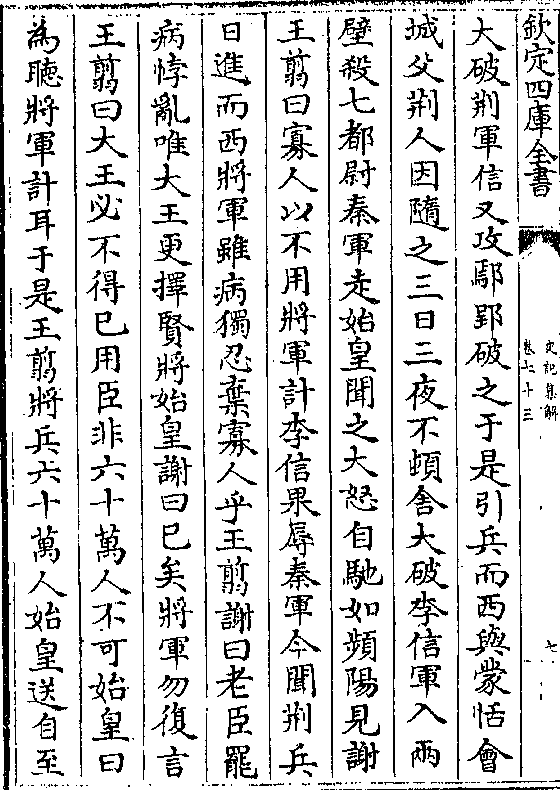 欽定四庫全書
史記集解
卷七十三
七
大破荆軍信又攻鄢郢破之于是引兵而西與蒙恬會
城父荆人因隨之三日三夜不頓舍大破李信軍入兩
壁殺七都尉秦軍走始皇聞之大怒自馳如頻陽見謝
王翦曰寡人以不用將軍計李信果辱秦軍今聞荆兵
日進而西將軍雖病獨忍棄寡人乎王翦謝曰老臣罷
病悖亂唯大王更擇賢將始皇謝曰已矣將軍勿復言
王翦曰大王必不得已用臣非六十萬人不可始皇曰
為聽將軍計耳于是王翦將兵六十萬人始皇送自至